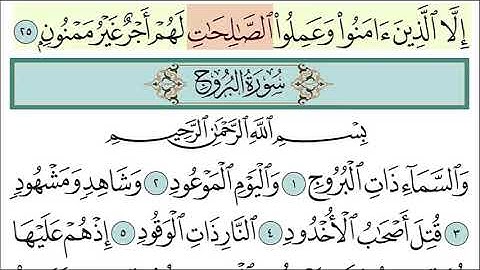 إِلَّا ٱلَّذِينَ ءَامَنُوا۟ وَعَمِلُوا۟ ٱلصَّٰلِحَٰتِ لَهُمْ أَجْرٌ غَيْرُ مَمْنُونٍۭ ٢٥
سُورَةُ الْبُرُوجِ
بِسْمِ ٱللَّهِ ٱلرَّحْمَٰنِ ٱلرَّحِيمِ
وَٱلسَّمَآءِ ذَاتِ ٱلْبُرُوجِ ١ وَٱلْيَوْمِ ٱلْمَوْعُودِ ٢ وَشَاهِدٍ وَمَشْهُودٍ
٣ قُتِلَ أَصْحَٰبُ ٱلْأُخْدُودِ ٤ ٱلنَّارِ ذَاتِ ٱلْوَقُودِ ٥ إِذْ هُمْ عَلَيْهَا